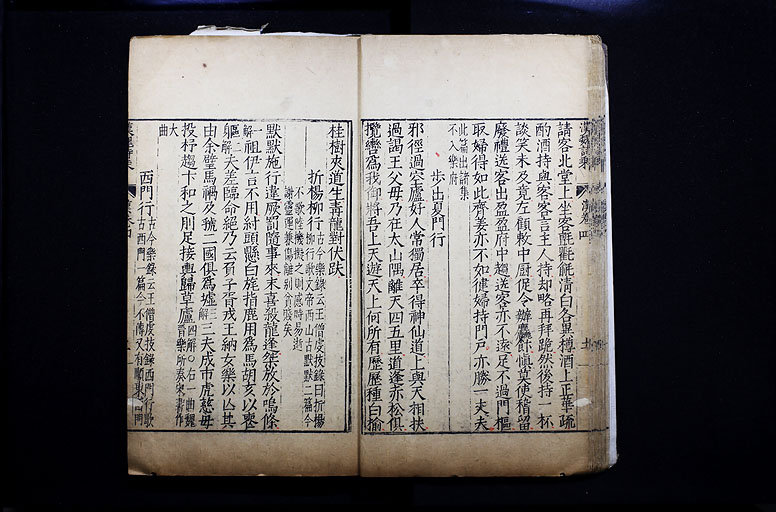 漢魏詩乘 漢卷四
請客北堂上坐客氊氍毹清白各異樽酒上正華疏
酌酒持與客客言主人持却略再拜跪然後持一杯
談笑未及竟左顧敕中厨促令辦麤飰慎莫使稽留
廢禮送客出盈盈府中趨送客亦不遠足不過門樞
取婦得如此齊姜亦不如徤婦持門戶亦勝一丈夫
此篇出諸集
不入樂府
步出夏門行
邪徑過空廬好人常獨居卒得神仙道上與天相扶
過謁王父母乃在太山隅離天四五里道逢赤松俱
攬轡爲我御將吾上天遊天上何所有歷歷種白榆
桂樹夾道生青龍對伏趺
折楊柳行 古今樂錄云王僧虔技錄曰折楊
柳行歌文帝西山古默默二篇今
不歌陸機擬之則感時易逝
謝靈運兼傷離別貧賤矣
默默施行違厥罰隨事來末喜殺龍逢桀放於鳴條
一解祖伊言不用紂頭懸白旄指鹿用爲馬胡亥以喪
軀二解夫差臨命絶乃云負子胥戎王納女樂以亡其
由余璧馬禍及虢二國俱爲墟三解三夫成市虎慈母
投杼趨卞和之刖足接輿歸草廬四解○右一曲魏
晉樂所奏宋書作
大
曲
西門行 古今樂錄云王僧虔技錄西門行歌
古西門一篇今不傳又有順東西門